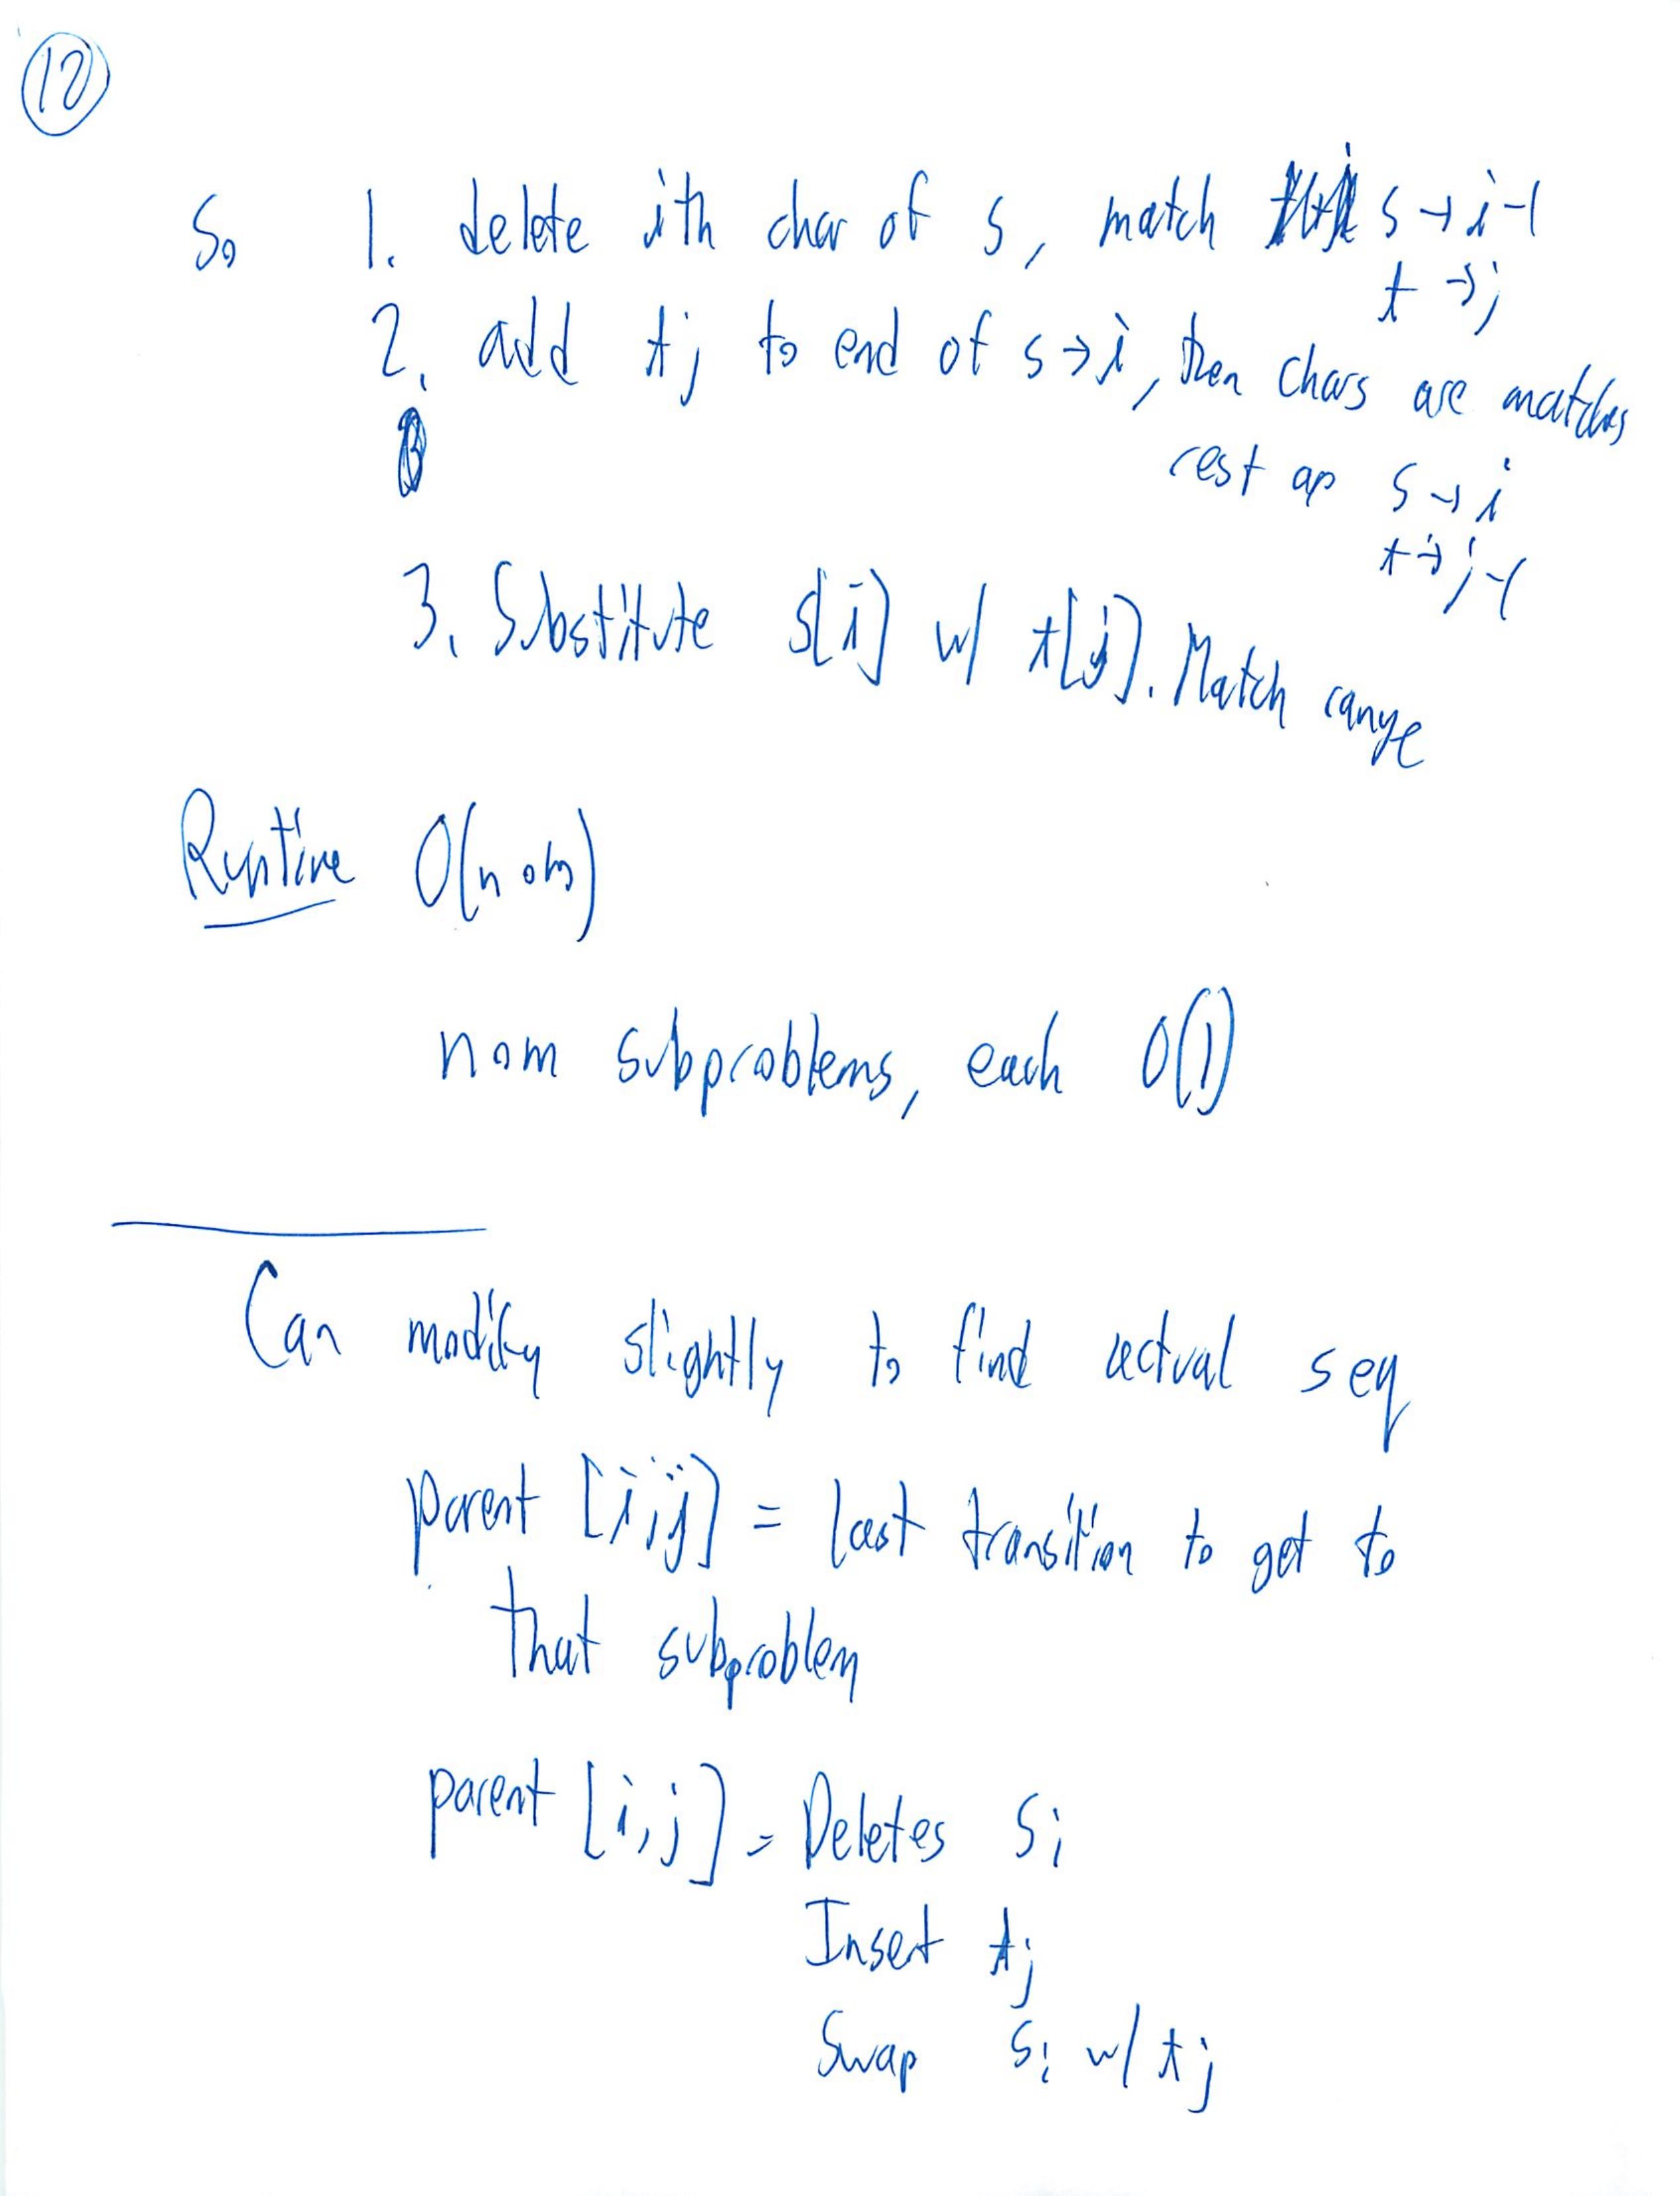 10
So 1. delete ith char of s, match s → i-1
t → j
2. add tj to end of s → i, then chars are matches
rest as s → i
t → j-1
3. Substitute s[i] w/ t[j]. Match range
Runtime O(n∘m)
n∘m subproblems, each O(1)
Can modify slightly to find actual seq
parent [i,j] = last transition to get to
that subproblem
parent [i,j] = Deletes si
Insert tj
Swap si w/ tj